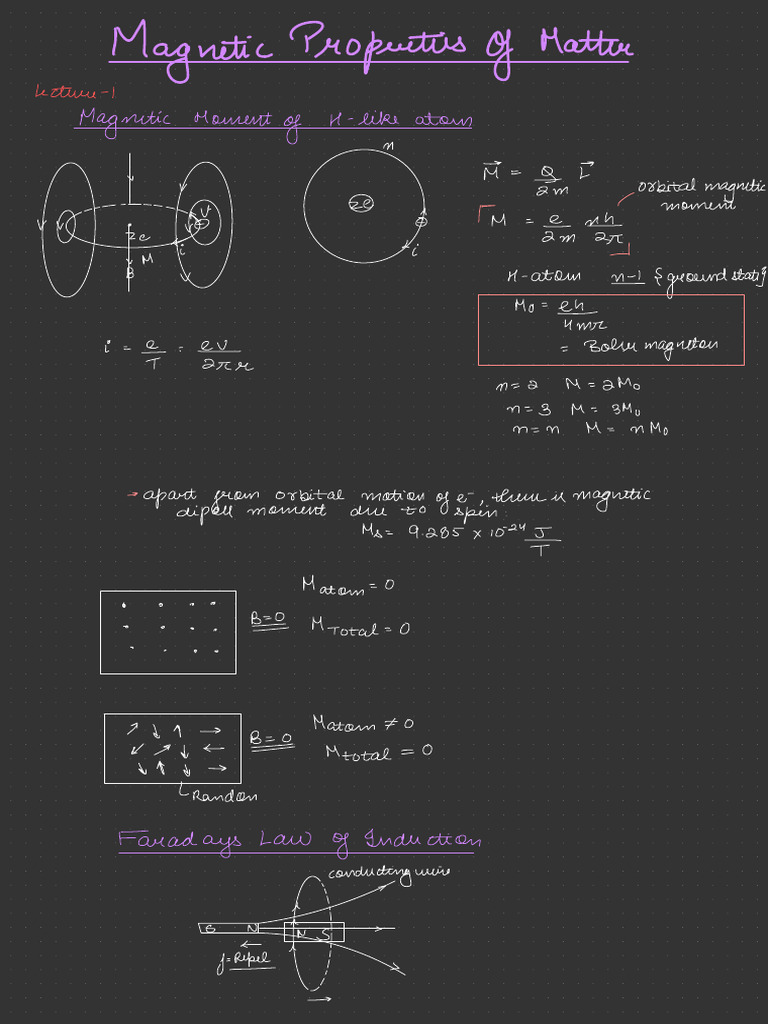 Magnetic Properties Of Matter
Lecture-1
Magnetic Moment of H-like atom
n
ze
i
v
i
ze
M
B
M = Q/2m L
orbital magnetic moment
M = e/2m nh/2π
H-atom n-1 {ground state}
M₀ = eh/4mπ
= Bohr magneton
i = e/T = ev/2πr
n=2 M = 2M₀
n=3 M = 3M₀
n=n M = nM₀
→ apart from orbital motion of e⁻, there is magnetic
dipole moment due to spin.
Ms = 9.285 × 10⁻²⁴ J/T
M atom = 0
B=0
M Total = 0
M atom ≠ 0
B = 0
M total = 0
Random
Faradays Law of Induction
conducting wire
S N N S
f=Repel